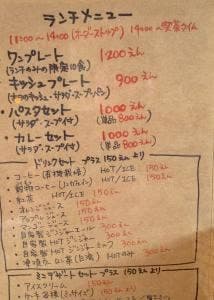 ランチメニュー
11:00〜14:00(オーダーストップ) 14:00〜喫茶タイム
ワンプレート 1200えん
(ランチのみの限定10食)
キッシュプレート 900えん
(キッシュ・サラダ・スープ・パン)
・パスタセット 1000えん
(サラダ・スープ付) (単品800えん)
・カレーセット 1000えん
(サラダ・スープ付) (単品800えん)
ドリンクセット プラス 150えんより
・コーヒー(有機栽培) HOT/ICE 150えん
・穀物コーヒー(ノンカフェイン) HOT/ICE 150えん
・紅茶 HOT/ICE 150えん
・オレンジジュース 150えん
・アップルジュース 150えん
・マンゴージュース 150えん
・自家製ジンジャーエール 300えん
・自家製HOTジンジャー 300えん
・自家製HOTジンジャーミルク 300えん
・酒粕 (自家製) HOTのみ 300えん
ミニデザートセット プラス 150えんより
・アイスクリーム 150えん
・ケーキ各種(ミニサイズ)